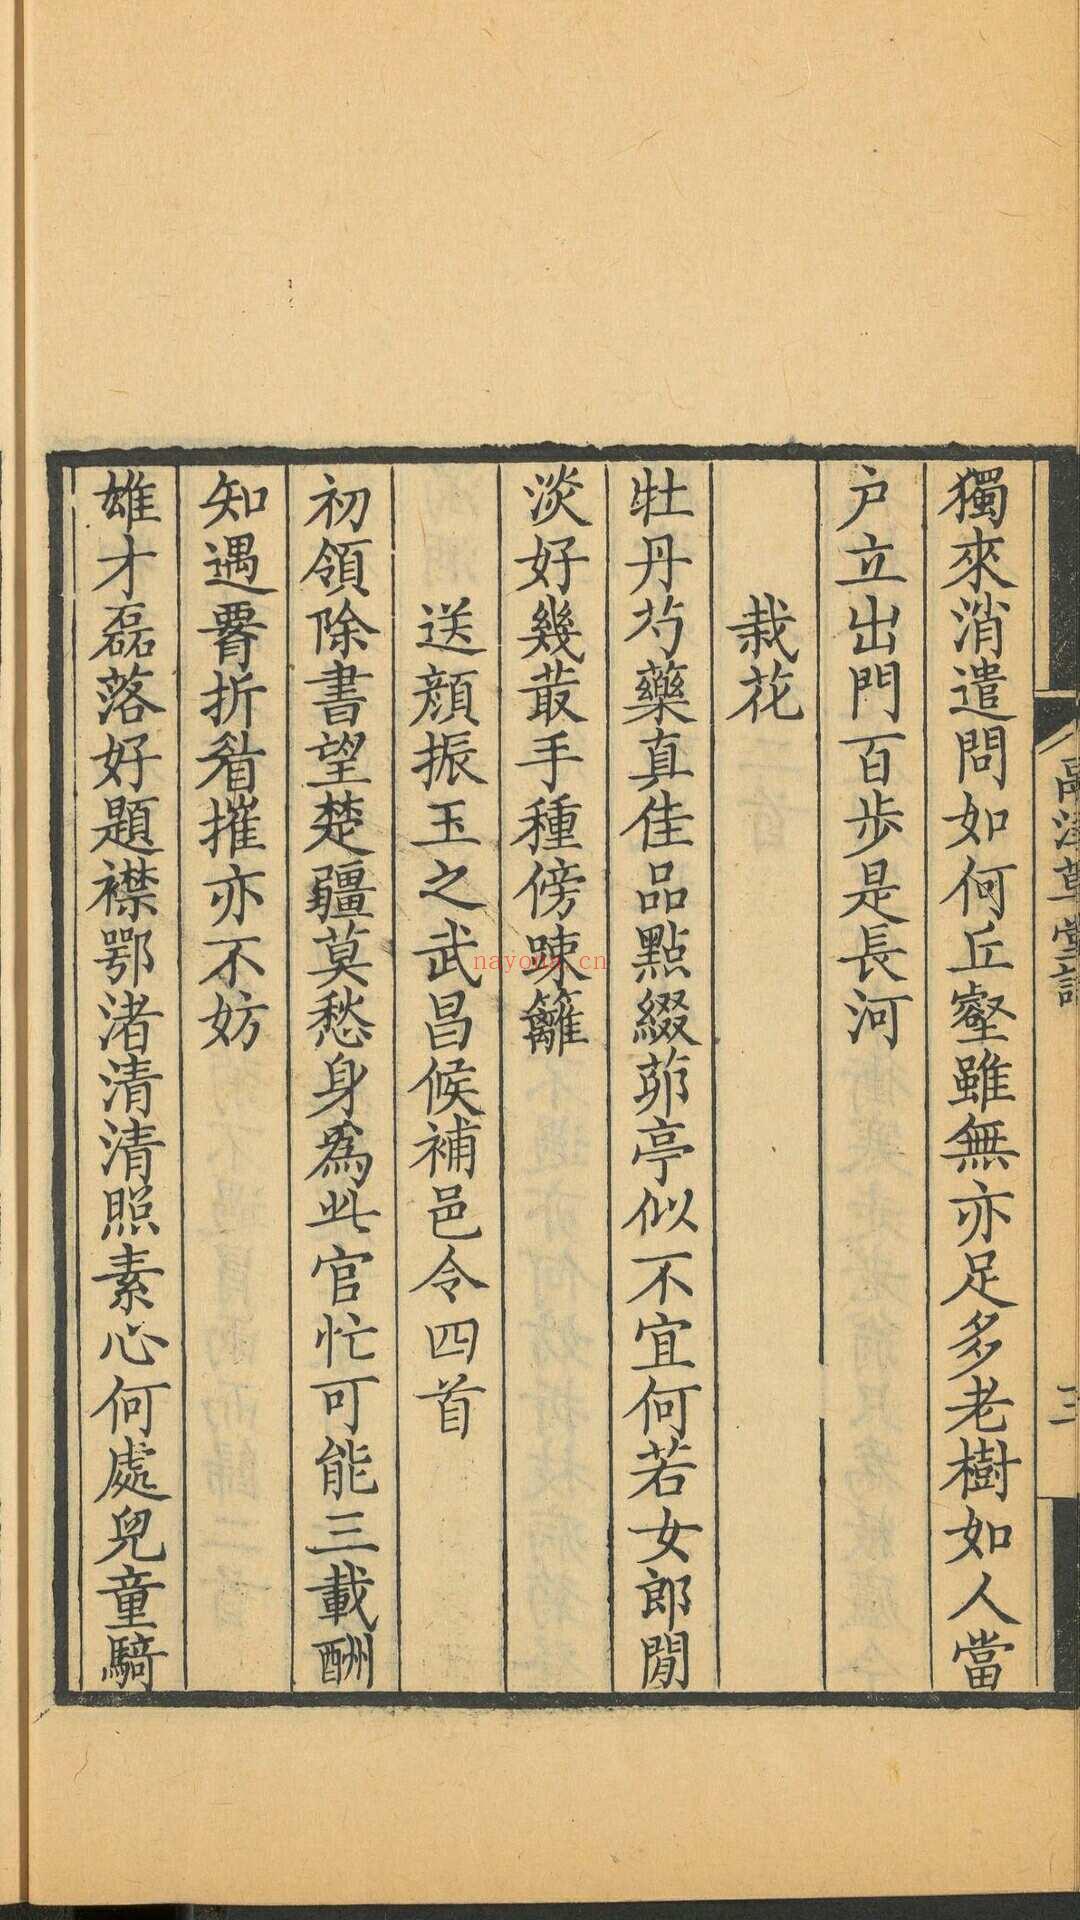 獨來消遣問如何丘壑雖無亦足多老樹如人當
户立出門百步是長河
栽花
牡丹芍藥真佳品點綴茆亭似不宜何若女郎閒
淡好幾叢手種傍疎籬
送顏振玉之武昌候補邑令四首
初領除書望楚疆莫愁身為此官忙可能三載酬
知遇膂折眉摧亦不妨
雄才磊落好題襟鄂渚清清照素心何處兒童騎
草堂詩
三
nayona.cn